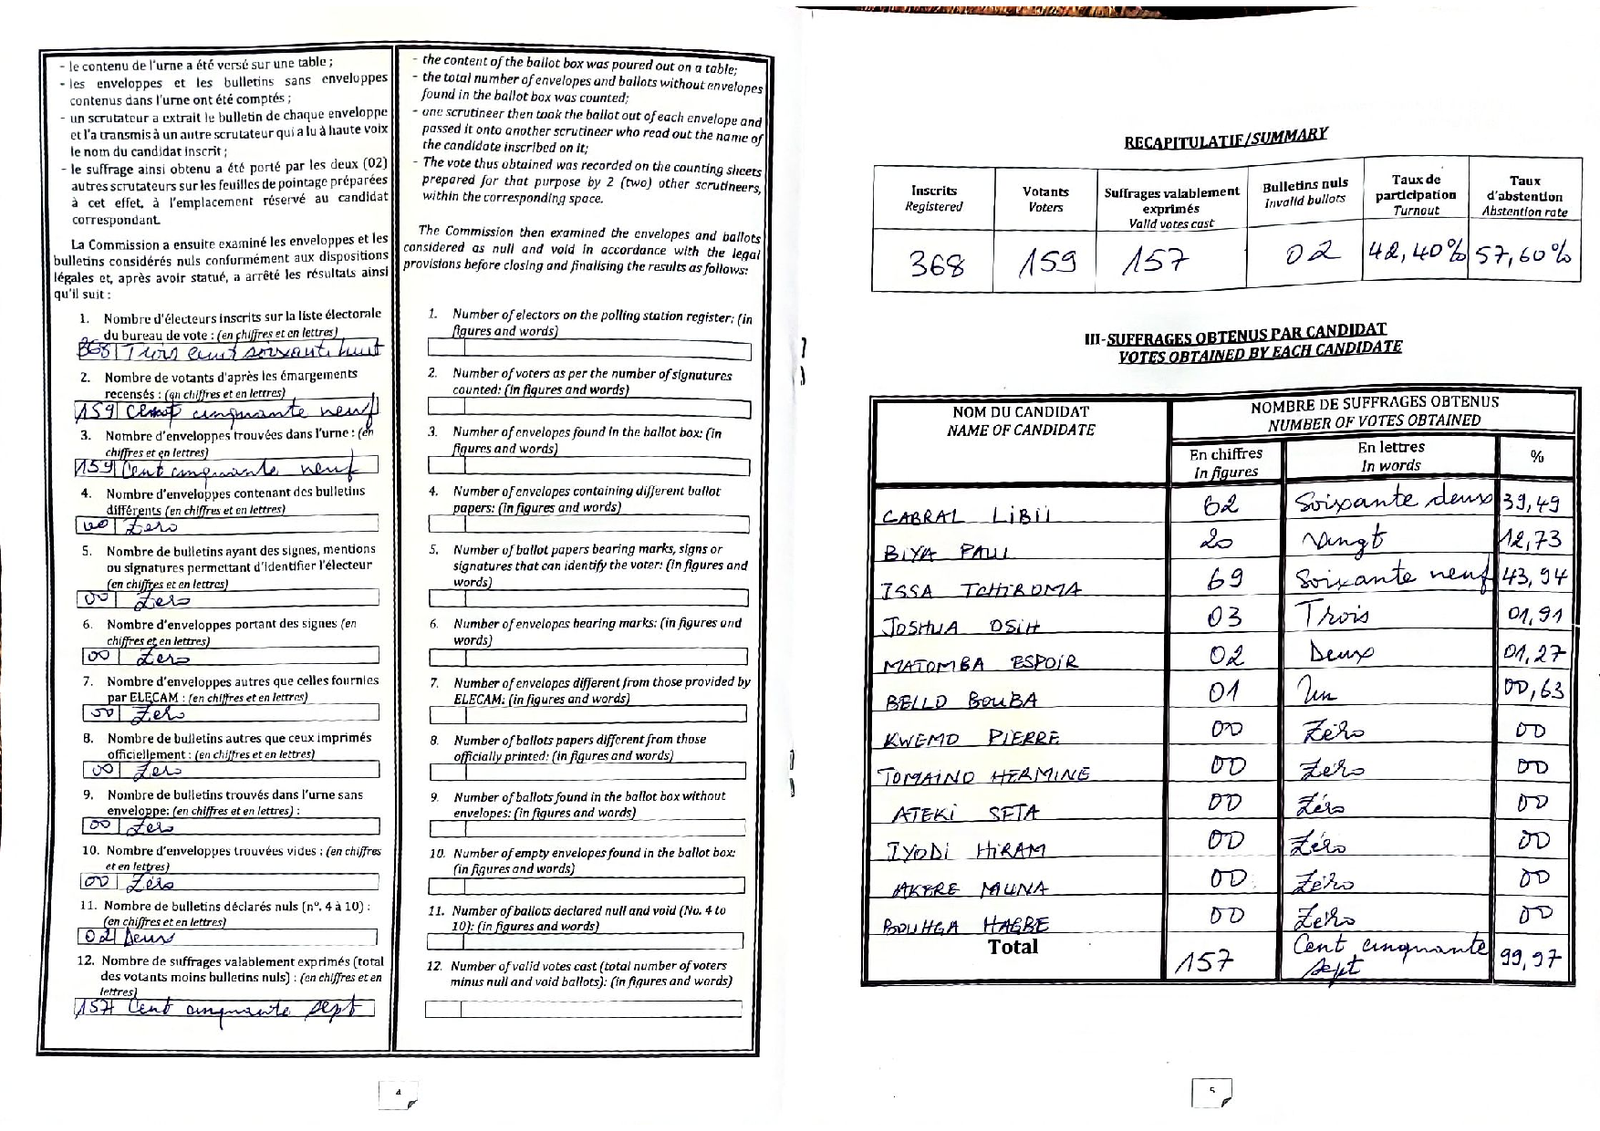 - le contenu de l'urne a été versé sur une table ;
- les enveloppes et les bulletins sans enveloppes
contenus dans l'urne ont été comptés ;
- un scrutateur a extrait le bulletin de chaque enveloppe
et l'a transmis à un autre scrutateur qui a lu à haute voix
le nom du candidat inscrit ;
- le suffrage ainsi obtenu a été porté par les deux (02)
autres scrutateurs sur les feuilles de pointage préparées
à cet effet, à l'emplacement réservé au candidat
correspondant.
La Commission a ensuite examiné les enveloppes et les
bulletins considérés nuls conformément aux dispositions
légales et, après avoir statué, a arrêté les résultats ainsi
qu'il suit :
1. Nombre d'électeurs inscrits sur la liste électorale
du bureau de vote : (en chiffres et en lettres)
368 Trois cent soixante huit
2. Nombre de votants d'après les émargements
recensés : (en chiffres et en lettres)
159 Cent cinquante neuf
3. Nombre d'enveloppes trouvées dans l'urne : (en
chiffres et en lettres)
159 Cent cinquante neuf
4. Nombre d'enveloppes contenant des bulletins
différents (en chiffres et en lettres)
00 Zero
5. Nombre de bulletins ayant des signes, mentions
ou signatures permettant d'identifier l'électeur
(en chiffres et en lettres)
00 Zero
6. Nombre d'enveloppes portant des signes (en
chiffres et en lettres)
00 Zero
7. Nombre d'enveloppes autres que celles fournies
par ELECAM : (en chiffres et en lettres)
00 Zero
8. Nombre de bulletins autres que ceux imprimés
officiellement : (en chiffres et en lettres)
00 Zero
9. Nombre de bulletins trouvés dans l'urne sans
enveloppe: (en chiffres et en lettres) :
00 Zero
10. Nombre d'enveloppes trouvées vides : (en chiffres
et en lettres)
00 Zéro
11. Nombre de bulletins déclarés nuls (n°. 4 à 10) :
(en chiffres et en lettres)
02 Deux
12. Nombre de suffrages valablement exprimés (total
des votants moins bulletins nuls) : (en chiffres et en
lettres)
157 Cent cinquante sept
- the content of the ballot box was poured out on a table;
- the total number of envelopes and ballots without envelopes
found in the ballot box was counted;
- one scrutineer then took the ballot out of each envelope and
passed it onto another scrutineer who read out the name of
the candidate inscribed on it;
- The vote thus obtained was recorded on the counting sheets
prepared for that purpose by 2 (two) other scrutineers,
within the corresponding space.
The Commission then examined the envelopes and ballots
considered as null and void in accordance with the legal
provisions before closing and finalising the results as follows:
1. Number of electors on the polling station register: (in
figures and words)
2. Number of voters as per the number of signatures
counted: (in figures and words)
3. Number of envelopes found in the ballot box: (in
figures and words)
4. Number of envelopes containing different ballot
papers: (in figures and words)
5. Number of ballot papers bearing marks, signs or
signatures that can identify the voter: (in figures and
words)
6. Number of envelopes bearing marks: (in figures and
words)
7. Number of envelopes different from those provided by
ELECAM: (in figures and words)
8. Number of ballots papers different from those
officially printed: (in figures and words)
9. Number of ballots found in the ballot box without
envelopes: (in figures and words)
10. Number of empty envelopes found in the ballot box:
(in figures and words)
11. Number of ballots declared null and void (No. 4 to
10): (in figures and words)
12. Number of valid votes cast (total number of voters
minus null and void ballots): (in figures and words)
4
RECAPITULATIF/SUMMARY
Inscrits Registered | Votants Voters | Suffrages valablement exprimés Valid votes cast | Bulletins nuls Invalid bullots | Taux de participation Turnout | Taux d'abstention Abstention rate
368 159 157 02 42,40% 57,60%
III-SUFFRAGES OBTENUS PAR CANDIDAT
VOTES OBTAINED BY EACH CANDIDATE
NOM DU CANDIDAT NOMBRE DE SUFFRAGES OBTENUS
NAME OF CANDIDATE NUMBER OF VOTES OBTAINED
En chiffres En lettres %
In figures In words
CABRAL LIBII 62 Soixante deux 39,49
BIYA PAUL 20 Vingt 12,73
ISSA TCHIROMA 69 Soixante neuf 43,94
JOSHUA OSIH 03 Trois 01,91
MATOMBA ESPOIR 02 Deux 01,27
BELLO BOUBA 01 Un 00,63
KWEMO PIERRE 00 Zéro 00
TOMAINO HERMINE 00 Zéro 00
ATEKI SETA 00 Zéro 00
IYODI HIRAM 00 Zéro 00
AKERE MUNA 00 Zéro 00
BOUHGA HAGBE 00 Zéro 00
Total 157 Cent cinquante sept 99,97
5